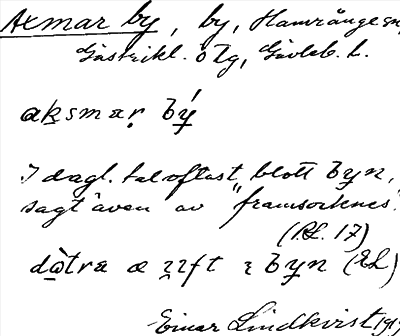 Axmar by, by, Hamrånge sn,
Gästrikl. ö tg, Gävleb. l.
aksmar by
I dagl. tal oftast blott byn,
sagt även av "framsocknes".
(RL. 17)
dòtra æ ɪft ɪ byn (EL)
Einar Lindkvist 191